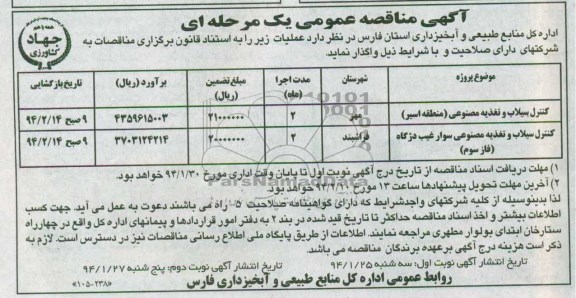 آگهی مناقصه عمومی یک مرحله ای
جهاد
کشاورزی
اداره کل منابع طبیعی و آبخیزداری استان فارس در نظر دارد عملیات زیر را به استناد قانون برگزاری مناقصات به
شرکتهای دارای صلاحیت و با شرایط ذیل واگذار نماید.
موضوع پروژه شهرستان مدت اجرا (ماه) مبلغ تضمین (ریال) برآورد (ریال) تاریخ بازگشایی
کنترل سیلاب و تغذیه مصنوعی (منطقه اسیر) مهر ۲ ۲۱۰۰۰۰۰۰ ۴۳۵۹۶۱۵۰۰۳ ۹ صبح ۹۴/۲/۱۴
کنترل سیلاب و تغذیه مصنوعی سوار غیب دژگاه (فاز سوم) فراشبند ۲ ۲۰۰۰۰۰۰۰ ۳۷۰۳۱۲۴۲۱۴ ۹ صبح ۹۴/۲/۱۴
۱) مهلت دریافت اسناد مناقصه از تاریخ درج آگهی نوبت اول تا پایان وقت اداری مورخ ۹۴/۱/۳۰ خواهد بود.
۲) آخرین مهلت تحویل پیشنهادها ساعت ۱۳ مورخ خواهد بود.
لذا بدینوسیله از کلیه شرکتهای واجدشرایط که دارای گواهینامه صلاحیت ۵ راه می باشند دعوت به عمل می آید. جهت کسب
اطلاعات بیشتر و اخذ اسناد مناقصه حداکثر تا تاریخ قید شده در بند ۲ به دفتر امور قراردادها و پیمانهای اداره کل واقع در چهارراه
ستارخان ابتدای بولوار مطهری مراجعه نمایند. اطلاعات از طریق پایگاه ملی اطلاع رسانی مناقصات نیز در دسترس است. لازم به
ذکر است هزینه درج آگهی برعهده برندگان مناقصه می باشد.
تاریخ انتشار آگهی نوبت اول: سه شنبه ۹۴/۱/۲۵ تاریخ انتشار آگهی نوبت دوم: پنج شنبه ۹۴/۱/۲۷
روابط عمومی اداره کل منابع طبیعی و آبخیزداری فارس
«۱۰۵-۲۳۸»
ParsNamadData